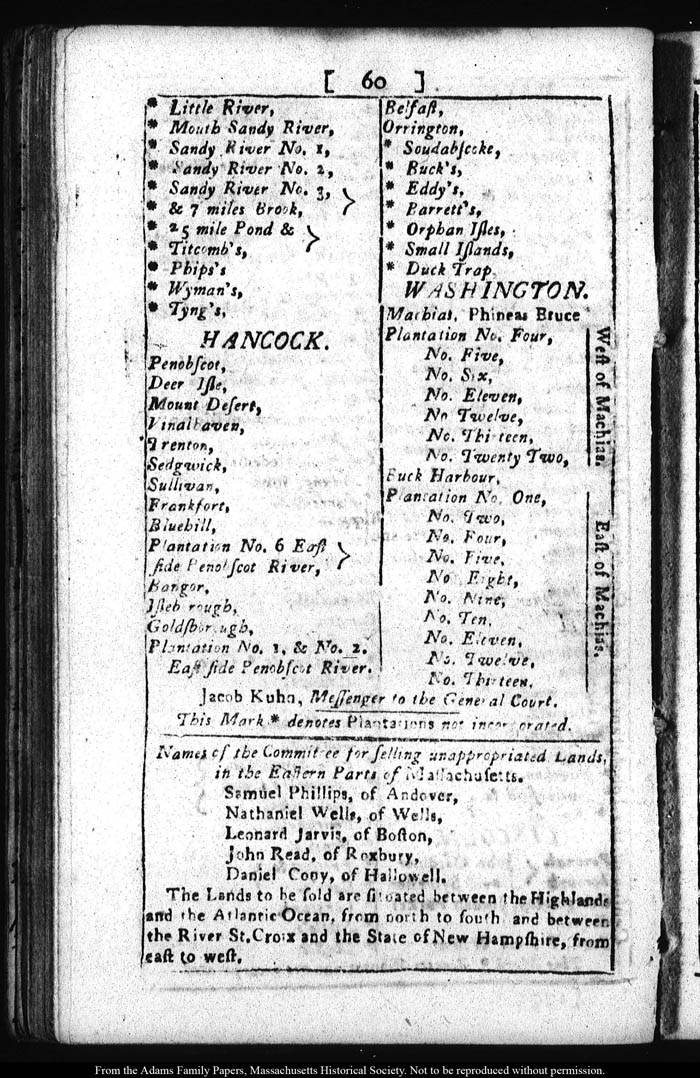 [ 60 ]
* Little River,
* Mouth Sandy River,
* Sandy River No. 1,
* Sandy River No. 2,
* Sandy River No. 3, }
* & 7 miles Brook,
* 25 mile Pond & }
* Titcomb's,
* Phips's
* Wyman's,
* Tyng's,
HANCOCK.
Penobſcot,
Deer Iſle,
Mount Deſert,
Vinalhaven,
Trenton,
Sedgwick,
Sullivan,
Frankfort,
Bluehill,
Plantation No. 6 Eaſt }
ſide Penobſcot River,
Bangor,
Iſleborough,
Goldſborough,
Plantation No. 1, & No. 2.
Eaſt ſide Penobſcot River.
Belfaſt,
Orrington,
* Soudabſcoke,
* Buck's,
* Eddy's,
* Barrett's,
* Orphan Iſles,
* Small Iſlands,
* Duck Trap.
WASHINGTON.
Machias, Phineas Bruce
Plantation No. Four,
No. Five,
No. Six,
No. Eleven,
No Twelve,
No. Thirteen,
No. Twenty Two,
Weſt of Machias.
Buck Harbour,
Plantation No. One,
No. Two,
No. Four,
No. Five,
No Eight,
No. Nine,
No. Ten,
No. Eleven,
No. Twelve,
No. Thirteen.
Eaſt of Machias.
Jacob Kuhn, Meſſenger to the General Court.
This Mark * denotes Plantations not incorporated.
Names of the Committee for ſelling unappropriated Lands,
in the Eaſtern Parts of Maſſachuſetts.
Samuel Phillips, of Andover,
Nathaniel Wells, of Wells,
Leonard Jarvis, of Boſton,
John Read, of Roxbury,
Daniel Cony, of Hallowell.
The Lands to be ſold are ſituated between the Highlands
and the Atlantic Ocean, from north to ſouth and between
the River St. Croix and the State of New Hampſhire, from
eaſt to weſt.
From the Adams Family Papers, Massachusetts Historical Society. Not to be reproduced without permission.